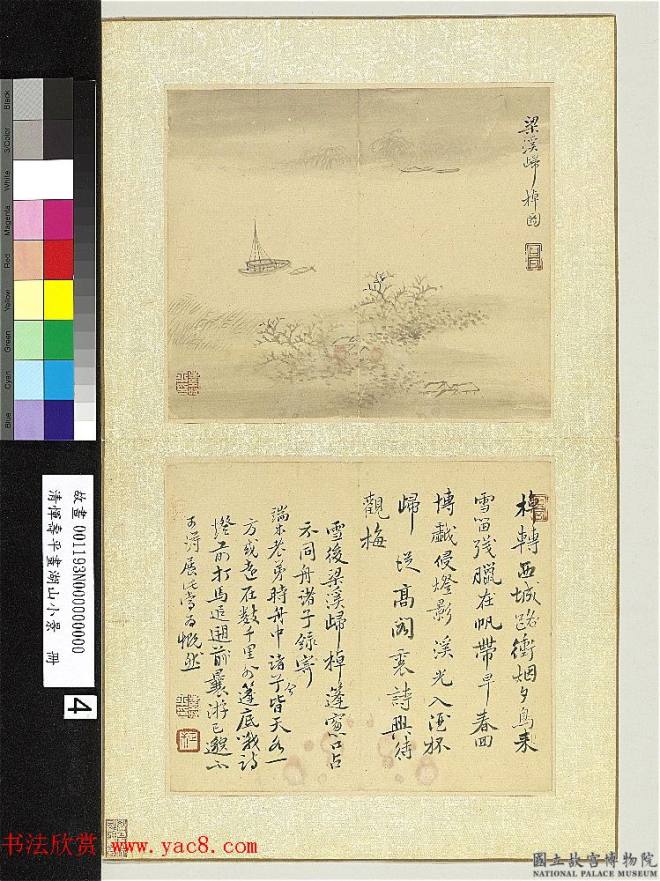 梁溪歸棹圖
棹轉西城路衝烟夕鳥來
雪留殘臘在帆帶早春回
博戲侵燈影溪光入酒杯
歸從高閣裏詩興待
觀梅
雪後梁溪歸棹蓬窗口占
示同舟諸子錄寄
老弟時舟中諸子今皆天各一
方或遠在數千里外蓬底哦詩
燈前打馬追遡前曩游已邈不
可得展此當為慨然
Black
3/Color
White
Magenta
Red
Yellow
Green
Cyan
Blue
故畫 001193N000000000
清惲壽平畫湖山小景 冊
4
书法欣赏 www.yac8.com
國立故宮博物院
NATIONAL PALACE MUSEUM